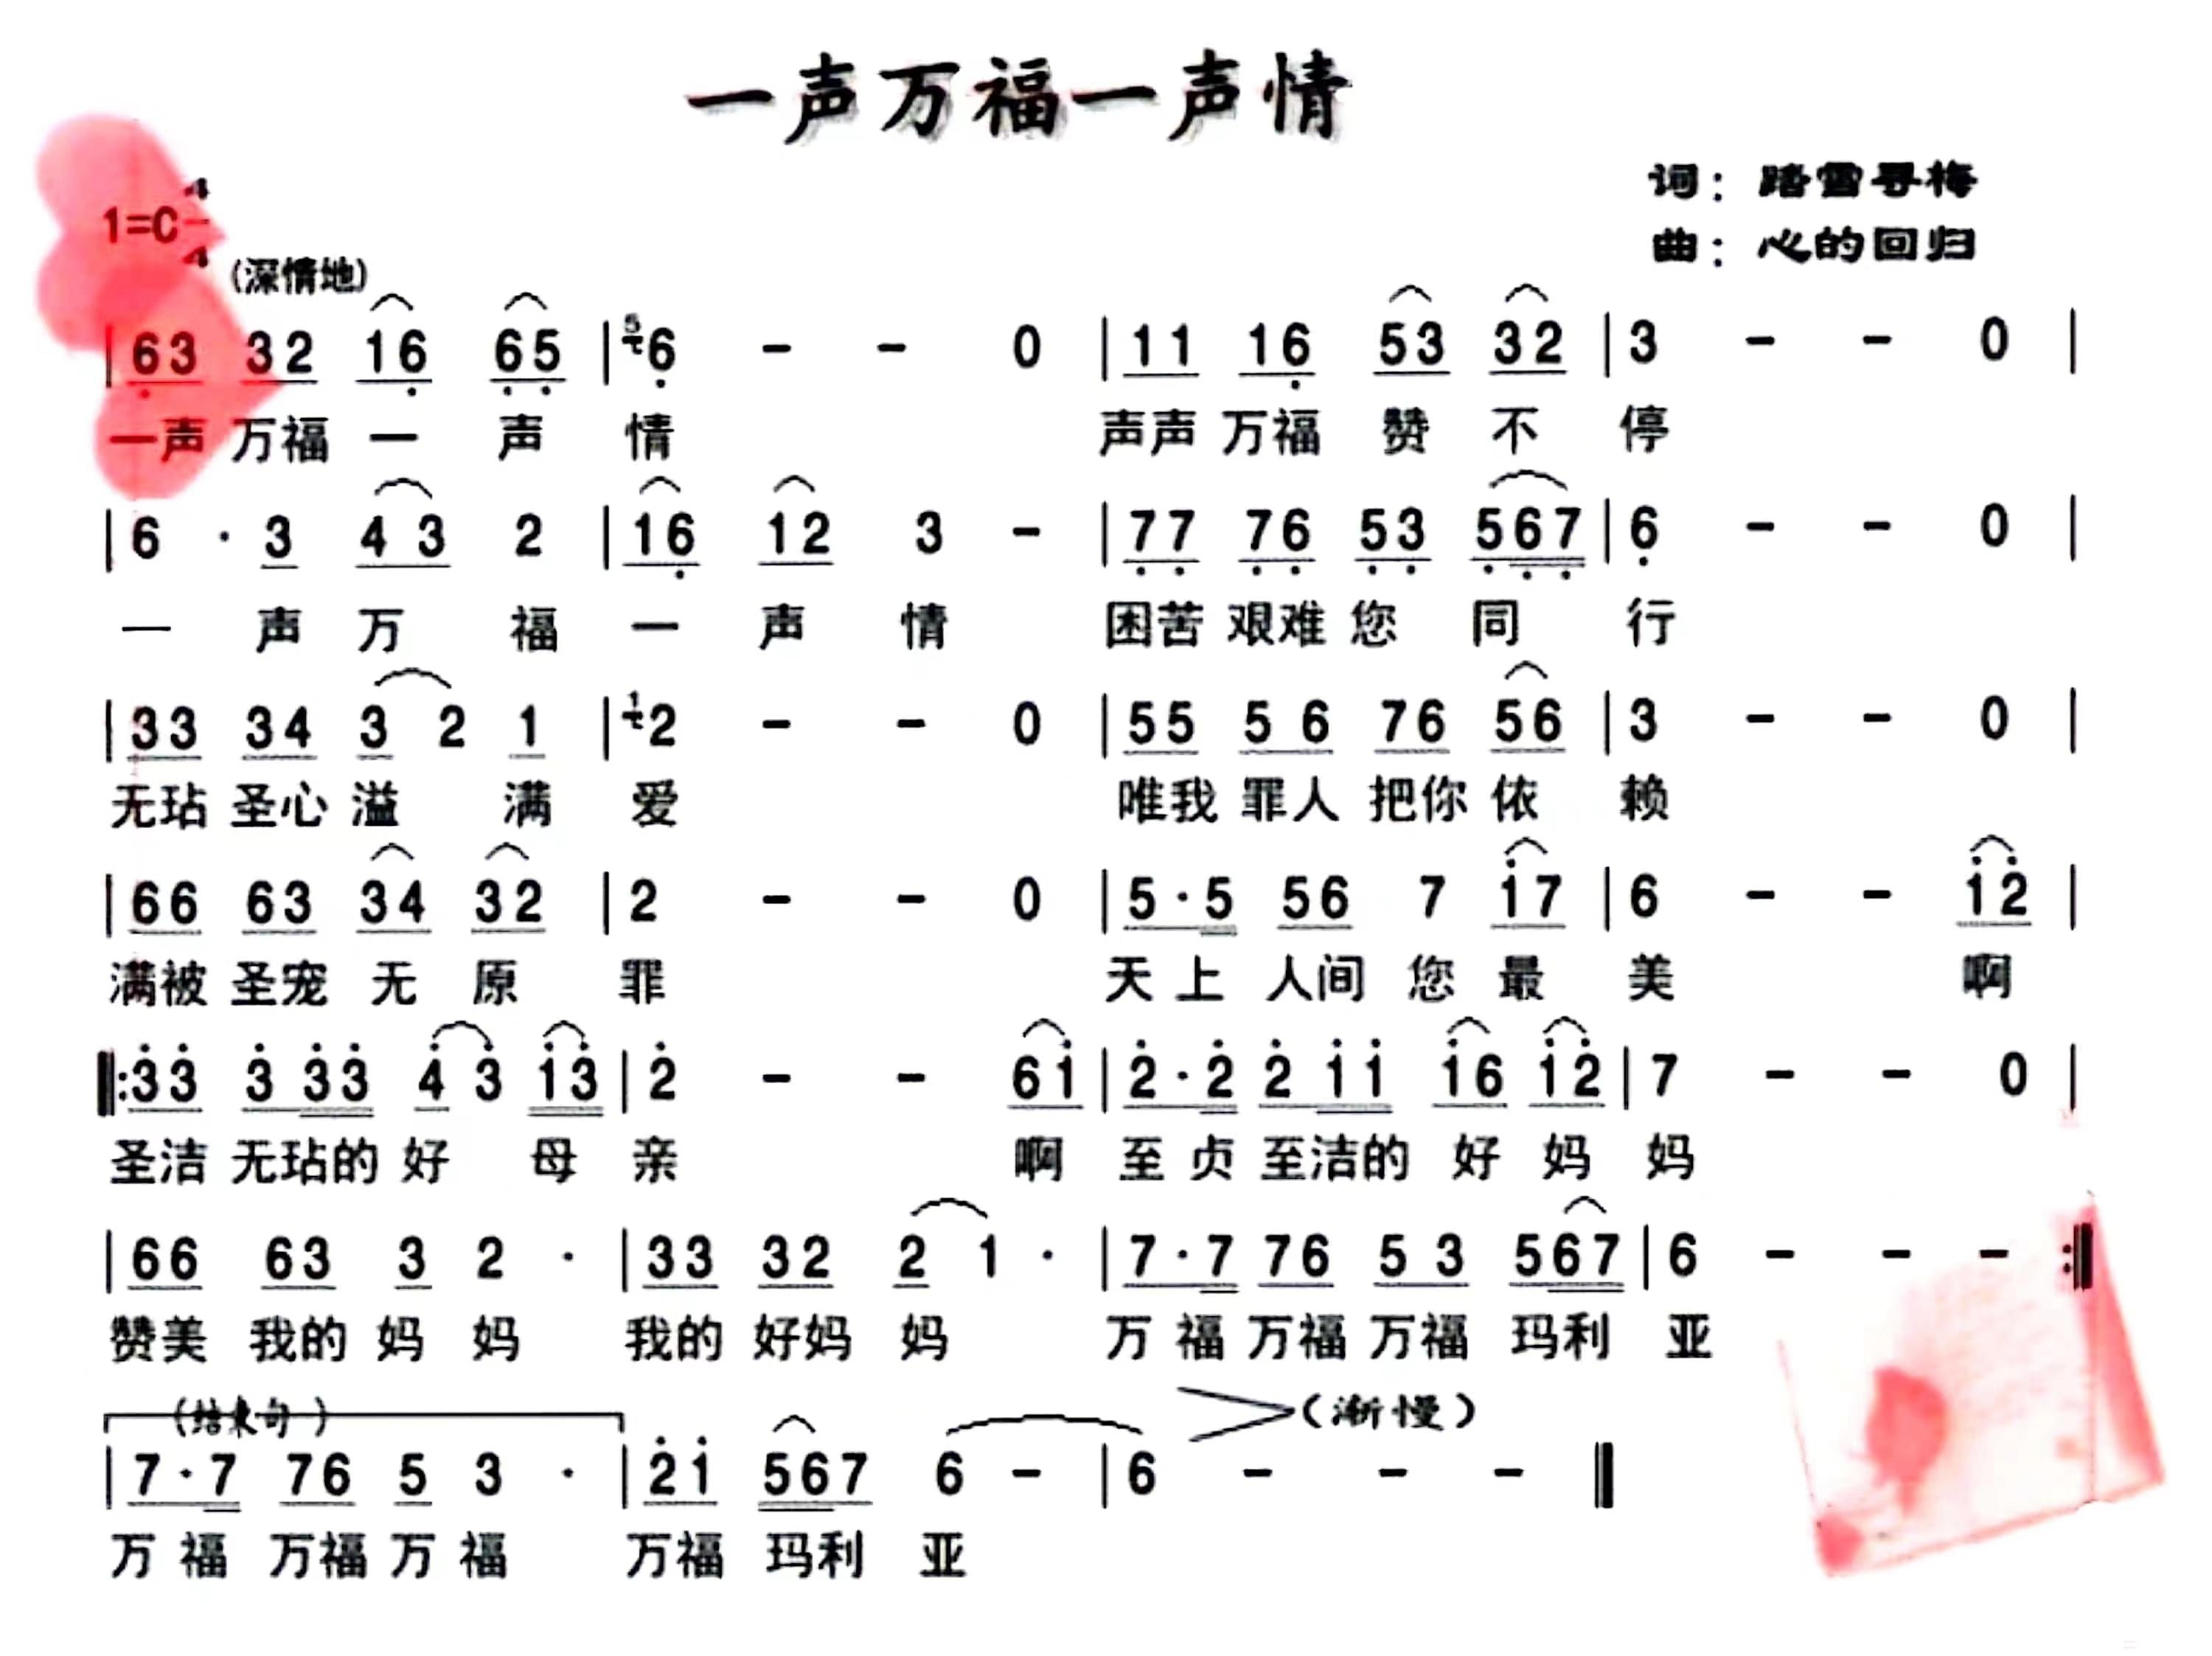 一声万福一声情
词：踏雪寻梅
1=C 4/4
曲：心的回归
(深情地)
|6̣3 32 16̣ 6̣5̣ |⁵6̣ - - 0 |11 16̣ 53 32 |3 - - 0 |
一声 万福 一 声 情 声声 万福 赞 不 停
|6 · 3 4 3 2 |16̣ 12 3 - |7̣7̣ 7̣6̣ 5̣3̣ 5̣6̣7̣ |6̣ - - 0 |
一 声 万 福 一 声 情 困苦 艰难 您 同 行
|33 34 3 2 1 |¹2 - - 0 |55 5 6 76 56 |3 - - 0 |
无玷 圣心 溢 满 爱 唯我 罪人 把你 依 赖
|66 63 34 32 |2 - - 0 |5·5 56 7 1̇7 |6 - - 1̇2̇ |
满被 圣宠 无 原 罪 天 上 人间 您 最 美 啊
‖:3̇3̇ 3̇ 3̇3̇ 4̇ 3̇ 1̇3̇ |2̇ - - 61̇ |2̇·2̇ 2̇ 1̇1̇ 1̇6 1̇2̇ |7 - - 0 |
圣洁 无玷的 好 母 亲 啊 至 贞 至洁的 好 妈 妈
|66 63 3 2 · |33 32 2 1 · |7·7 76 5 3 567 |6 - - - :‖
赞美 我的 妈 妈 我的 好妈 妈 万 福 万福 万福 玛利 亚
(结束句) (渐慢)
|7·7 76 5 3 · |2̇1̇ 567 6 - |6 - - - ‖
万 福 万福 万 福 万福 玛利 亚